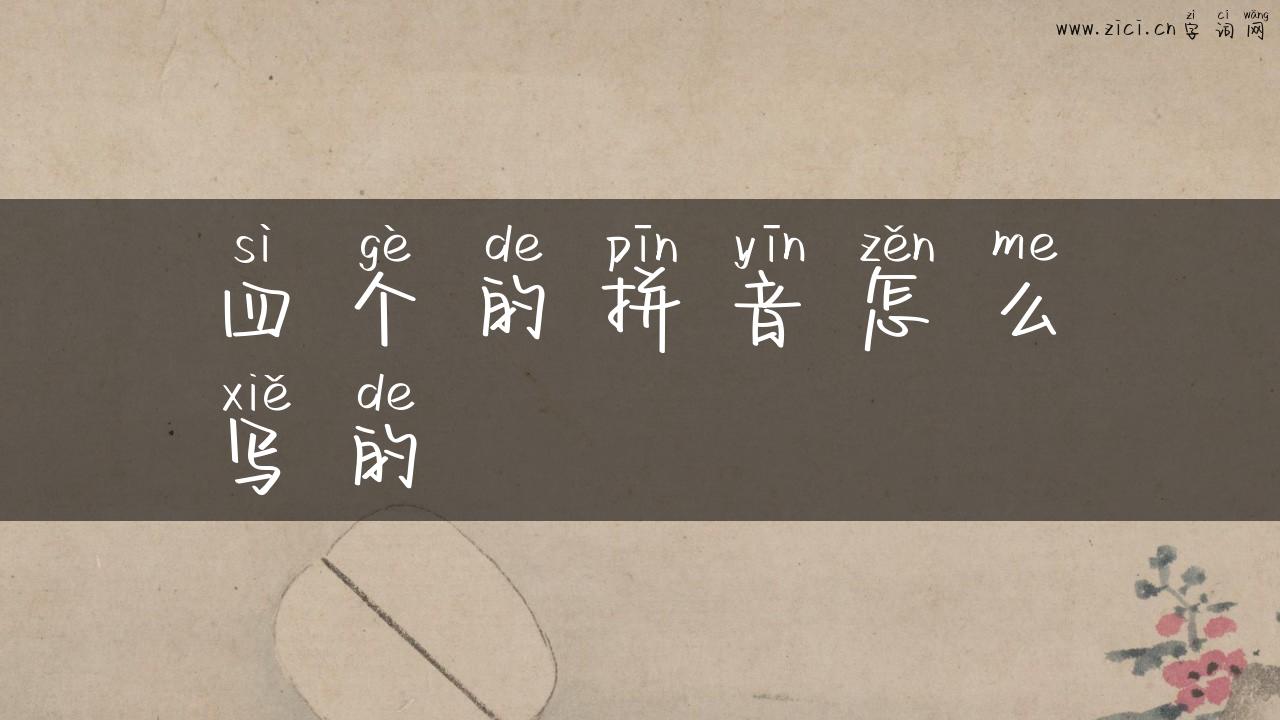 zì cí wǎng
www.zici.cn字词网
sì gè de pīn yīn zěn me
四个的拼音怎么
xiě de
写的